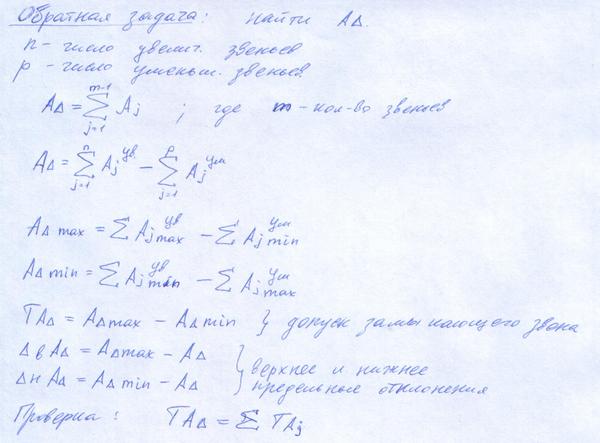 Обратная задача: найти A∆.
n - число увелич. звеньев
p - число уменьш. звеньев
A∆ = ∑_{j=1}^{m-1} Aj ; где m - кол-во звеньев
A∆ = ∑_{j=1}^{n} Aj^ув - ∑_{j=1}^{p} Aj^ум
A∆ max = ∑ Aj max^ув - ∑ Aj min^ум
A∆ min = ∑ Aj min^ув - ∑ Aj max^ум
TA∆ = A∆max - A∆min } допуск замыкающего звена
∆в A∆ = A∆max - A∆ } верхнее и нижнее
∆н A∆ = A∆ min - A∆ предельные отклонения
Проверка: TA∆ = ∑ TAj